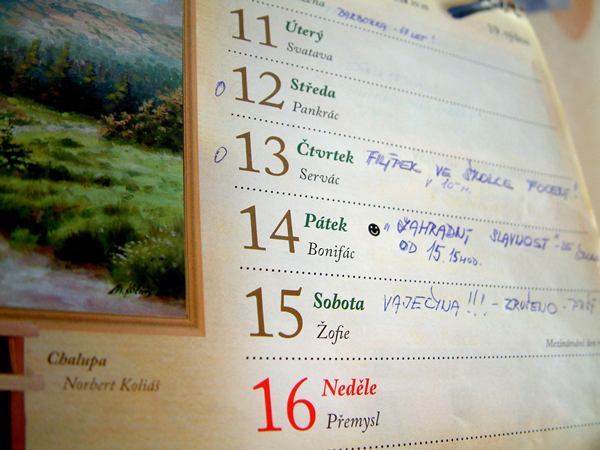 19. týden
BARBORKA - LET!
11 Úterý
Svatava
12 Středa
Pankrác
13 Čtvrtek FILÍPEK VE ŠKOLCE FOCENÍ!
Servác V 10 H.
14 Pátek „ZAHRADNÍ SLAVNOST"
Bonifác OD 15.15 HOD.
15 Sobota VAJEČINA!!! - ZRUŠENO -
Žofie
Mezinárodní den
16 Neděle
Přemysl
Chalupa
Norbert Koliáš